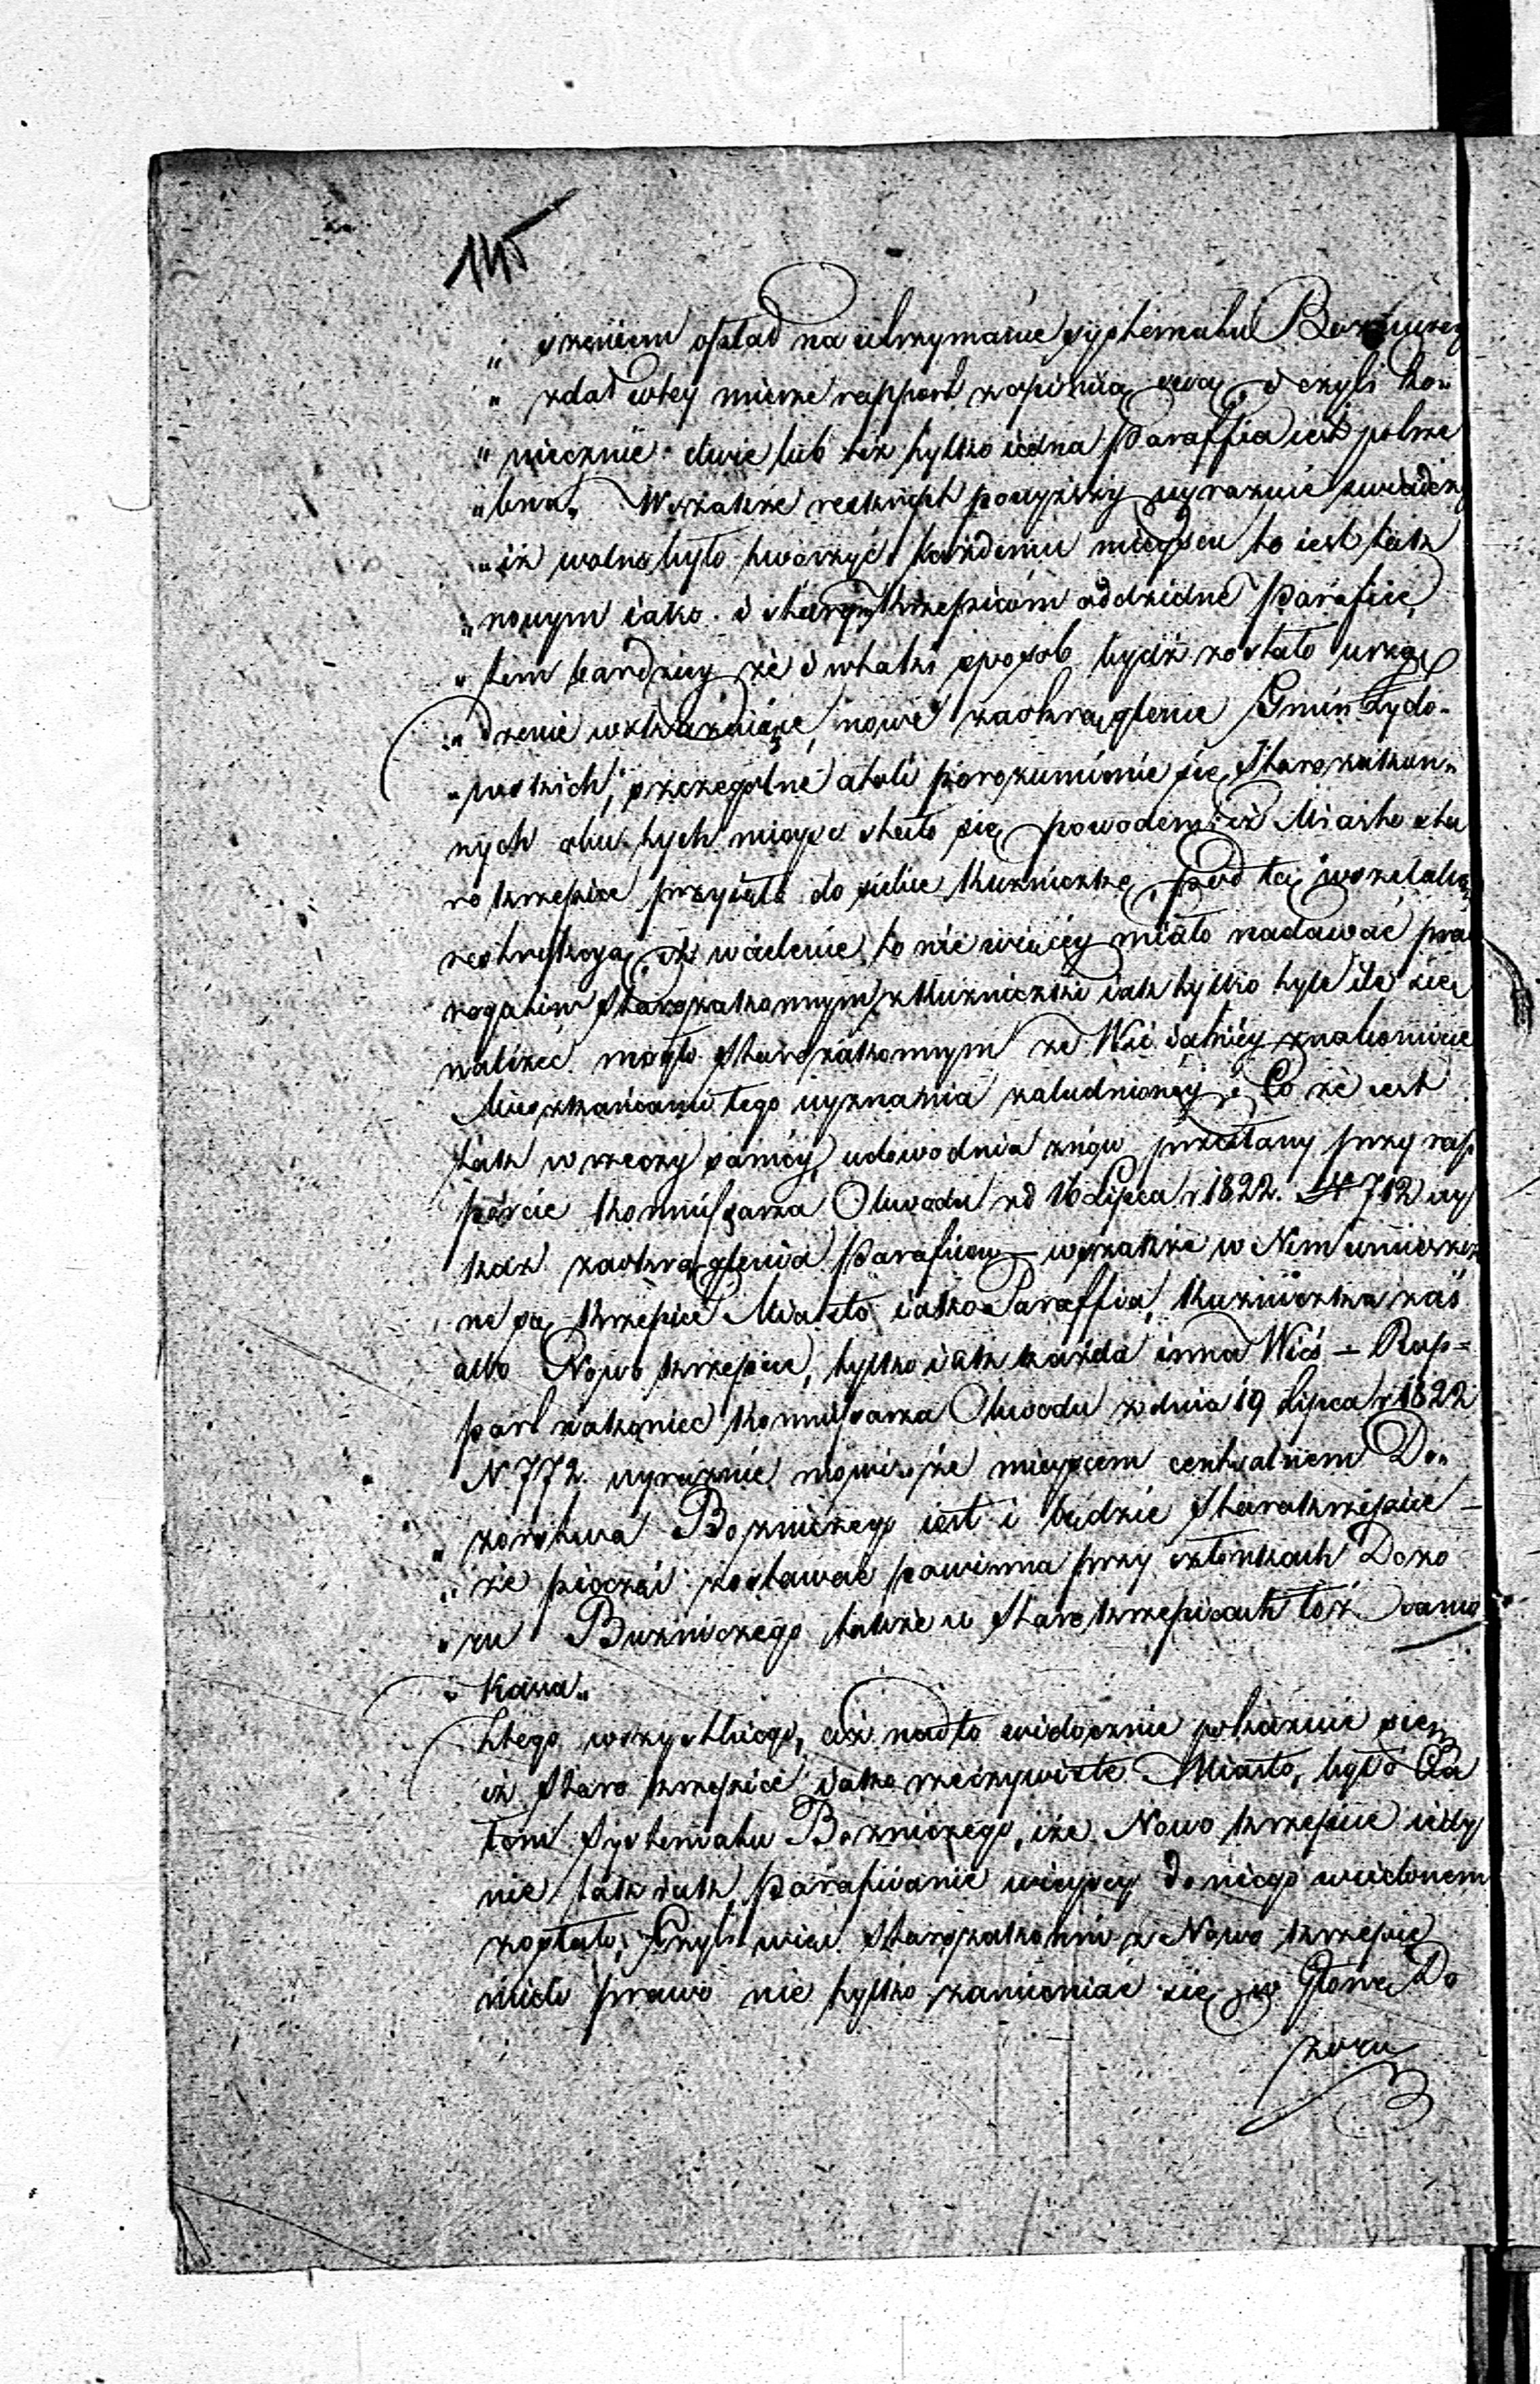 145
" szeniem opład na utrzymanie systhematu Bozniczey
" zdał wtey mierze rapport z opinią swą, i czyli ko„
" niecznie dwie lub też tylko iedna Paraffia iest potrze
" bna„ Wszakże reskrypt powyższy wyraznie zwiadcz
" iż wolno było tworzyć każdemu mieyscu to iest tak
" nowym iako i starym Krzepicom oddzidne Parafiie,
" tem bardziey że i wtaki sposob bydź zostało urzą
" dzenie wskazuiące, nowe zaokrąglenie Gmin Żydo-
" wskich; szczegolne atoli porozumienie się Starozakon„
nych obu tych mieysc stało się powodem iż Miasto sta
ro krzepice przyięło do siebie Kuzniczkę, pod tą wszelako
restrykcyą, iż wcielenie to nie więcéy miało nadawać pra
rogatiw Starozakonnym z Kuzniczki iak tylko tyle ile się
należeć mogło Starozakonnym ze Wsi iakiéy znakomicie
Mieszkańcami tego wyznania zaludnionéy. Co że iest
tak w rzeczy saméy, udowodnia znow przesłany przy rap
porcie Kommissarza Obwodu z d 16 Lipca r 1822. N 712 wy
kaz zaokrąglenia Parafiiow — wszakże w Nim umieszczo
ne są Krzepice Miasto iako Paraffia, Kuzniczka zaś
albo Nowo krzepice, tylko iak każda inna Wieś — Rap=
port nakoniec Kommissarza Obwodu z dnia 19 Lipca r 1822
N 772. wyraznie mowi, że mieyscem centralnem Do„
" zorstwa Bozniczego iest i będzie Starokrzepice —
" że pieczęć zostawać powinna przy członkach Dozo
" ru Bozniczego także w Staro krzepicach toż samo
" Kassa„
Z tego wszystkiego, aż nadto widocznie pokazuie się,
iż Staro krzepice iako rzeczywiste Miasto, było Cia
łem Systematu Bozniczego, iże Nowo krzepice iedy
nie tak iak Parafiianie wieyscy do niego wcielonem
zostało; Czyli więc Starozakonni z Nowo krzepic
mieli prawo nie tylko zamieniać się w Głowę Do
zoru